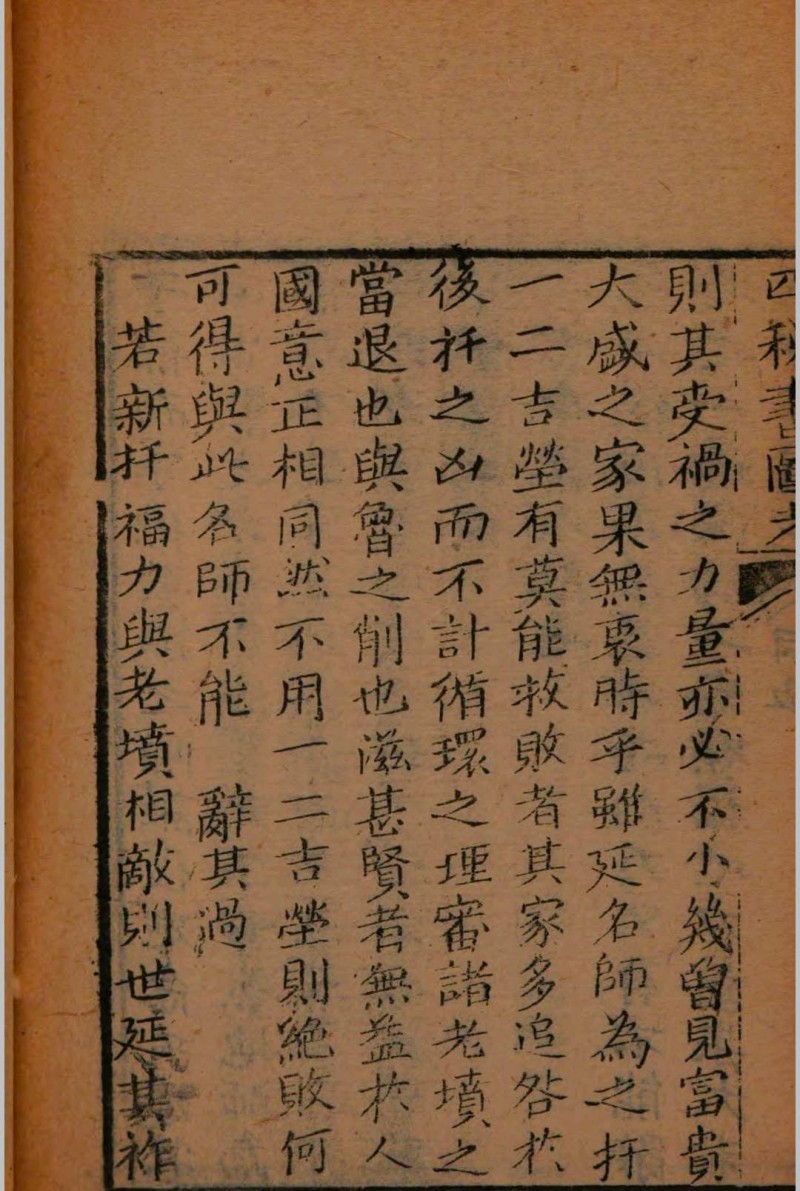 四秘書圖考
則其受禍之力量亦必不小幾曾見富貴
大盛之家果無衰時乎雖延名師為之扦
一二吉塋有莫能救敗者其家多追咎於
後扦之凶而不計循環之理審諸老墳之
當退也與魯之削也滋甚賢者無益於人
國意正相同然不用一二吉塋則絶敗何
可得與此名師不能 辭其過
若新扦福力與老墳相敵則世延其祚